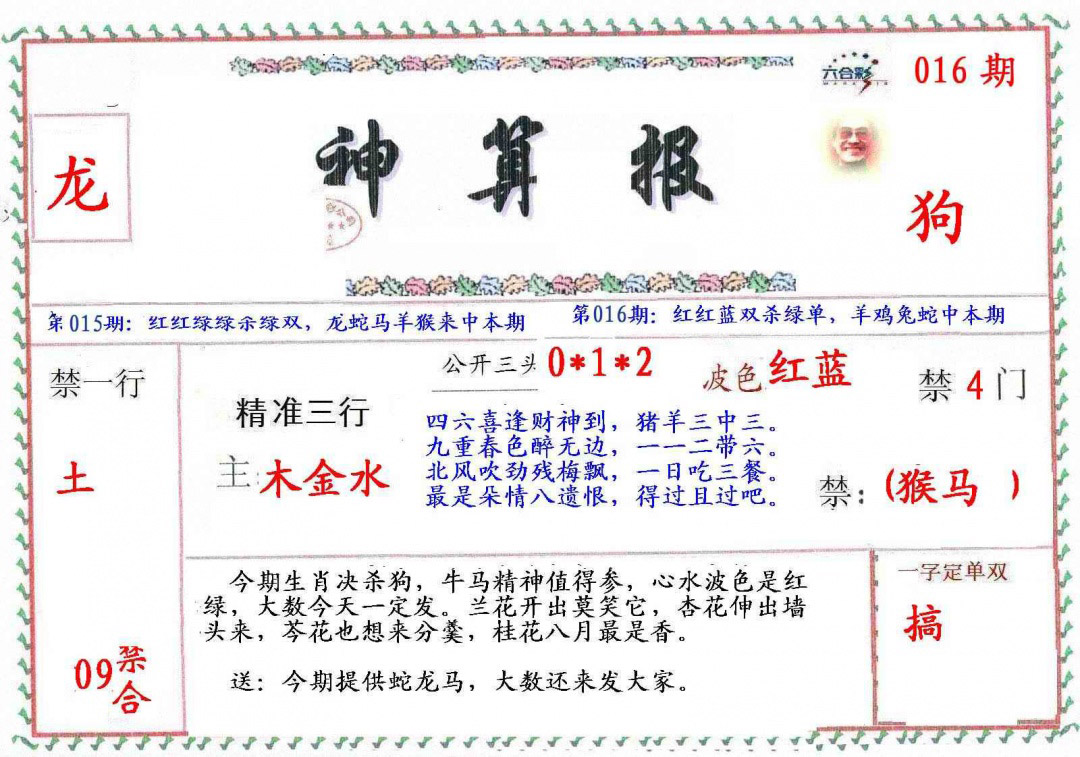 六合彩
016 期
神算报
龙
狗
第015期：红红绿绿杀绿双，龙蛇马羊猴来中本期
第016期：红红蓝双杀绿单，羊鸡兔蛇中本期
禁一行
土
09
禁
合
精准三行
主：木金水
公开三头 0*1*2
波色 红蓝
四六喜逢财神到，猪羊三中三。
九重春色醉无边，一一二带六。
北风吹劲残梅飘，一日吃三餐。
最是朵情八遗恨，得过且过吧。
禁 4 门
禁：(猴马 )
今期生肖决杀狗，牛马精神值得参，心水波色是红
绿，大数今天一定发。兰花开出莫笑它，杏花伸出墙
头来，芩花也想来分羹，桂花八月最是香。
送：今期提供蛇龙马，大数还来发大家。
一字定单双
搞